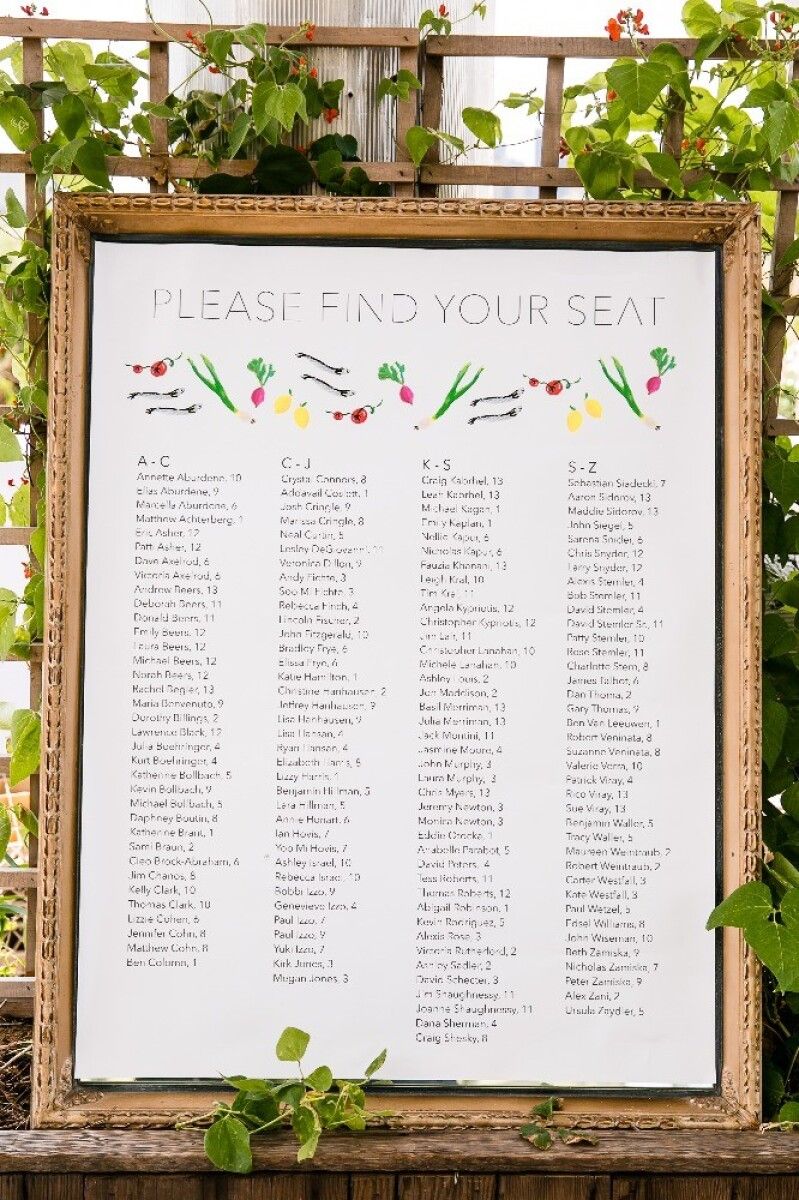 PLEASE FIND YOUR SEAT
A - C
Annette Aburdene, 10
Elias Aburdene, 9
Marcella Aburdene, 6
Matthew Achterberg, 1
Eric Asher, 12
Patti Asher, 12
Dave Axelrod, 6
Victoria Axelrod, 6
Andrew Beers, 13
Deborah Beers, 11
Donald Beers, 11
Emily Beers, 12
Laura Beers, 12
Michael Beers, 12
Norah Beers, 12
Rachel Begler, 13
Maria Benvenuto, 9
Dorothy Billings, 2
Lawrence Black, 12
Julia Boehringer, 4
Kurt Boehringer, 4
Katherine Bollbach, 5
Kevin Bollbach, 9
Michael Bollbach, 5
Daphney Boutin, 8
Katherine Brant, 1
Sami Braun, 2
Cleo Brock-Abraham, 6
Jim Chanos, 8
Kelly Clark, 10
Thomas Clark, 10
Lizzie Cohen, 6
Jennifer Cohn, 8
Matthew Cohn, 8
Ben Colomn, 1
C - J
Crystal Connors, 8
Adoavail Coslett, 1
Josh Cringle, 9
Marissa Cringle, 8
Neal Curtin, 5
Lesley DeGiovanni, 11
Veronica Dillon, 9
Andy Fichte, 3
Soo M. Fichte, 3
Rebecca Finch, 4
Lincoln Fischer, 2
John Fitzgerald, 10
Bradley Frye, 6
Elissa Frye, 6
Katie Hamilton, 1
Christine Hanhausen, 2
Jeffrey Hanhausen, 9
Lisa Hanhausen, 9
Lisa Hansen, 4
Ryan Hansen, 4
Elizabeth Harris, 8
Lizzy Harris, 1
Benjamin Hillman, 5
Lara Hillman, 5
Annie Honart, 6
Ian Hovis, 7
Yoo Mi Hovis, 7
Ashley Israel, 10
Rebecca Israel, 10
Bobbi Izzo, 9
Genevieve Izzo, 4
Paul Izzo, 7
Paul Izzo, 9
Yuki Izzo, 7
Kirk Jones, 3
Megan Jones, 3
K - S
Craig Kabrhel, 13
Leah Kabrhel, 13
Michael Kagan, 1
Emily Kaplan, 1
Nellie Kapur, 6
Nicholas Kapur, 6
Fauzia Khanani, 13
Leigh Kral, 10
Tim Kral, 11
Angela Kypriotis, 12
Christopher Kypriotis, 12
Jim Lair, 11
Christopher Lanahan, 10
Michele Lanahan, 10
Ashley Louis, 2
Jon Maddison, 2
Basil Merriman, 13
Julia Merriman, 13
Jack Montini, 11
Jasmine Moore, 4
John Murphy, 3
Laura Murphy, 3
Chris Myers, 13
Jeremy Newton, 3
Monica Newton, 3
Eddie Otocka, 1
Anabelle Parabot, 5
David Peters, 4
Tess Roberts, 11
Thomas Roberts, 12
Abigail Robinson, 1
Kevin Rodriguez, 5
Alexis Rose, 3
Victoria Rutherford, 2
Ashley Sadler, 2
David Schecter, 3
Jim Shaughnessy, 11
Joanne Shaughnessy, 11
Dana Sherman, 4
Craig Shesky, 8
S - Z
Sebastian Siadecki, 7
Aaron Sidorov, 13
Maddie Sidorov, 13
John Siegel, 5
Sarena Snider, 6
Chris Snyder, 12
Larry Snyder, 12
Alexis Stemler, 4
Bob Stemler, 11
David Stemler, 4
David Stemler Sr., 11
Patty Stemler, 10
Rose Stemler, 11
Charlotte Stern, 8
James Talbot, 6
Dan Thoma, 2
Gary Thomas, 9
Ben Van Leeuwen, 1
Robert Veninata, 8
Suzanne Veninata, 8
Valerie Verra, 10
Patrick Viray, 4
Rico Viray, 13
Sue Viray, 13
Benjamin Waller, 5
Tracy Waller, 5
Maureen Weintraub, 2
Robert Weintraub, 2
Carter Westfall, 3
Kate Westfall, 3
Paul Wetzel, 5
Edsel Williams, 8
John Wiseman, 10
Beth Zamiska, 9
Nicholas Zamiska, 7
Peter Zamiska, 9
Alex Zani, 2
Ursula Zaydler, 5